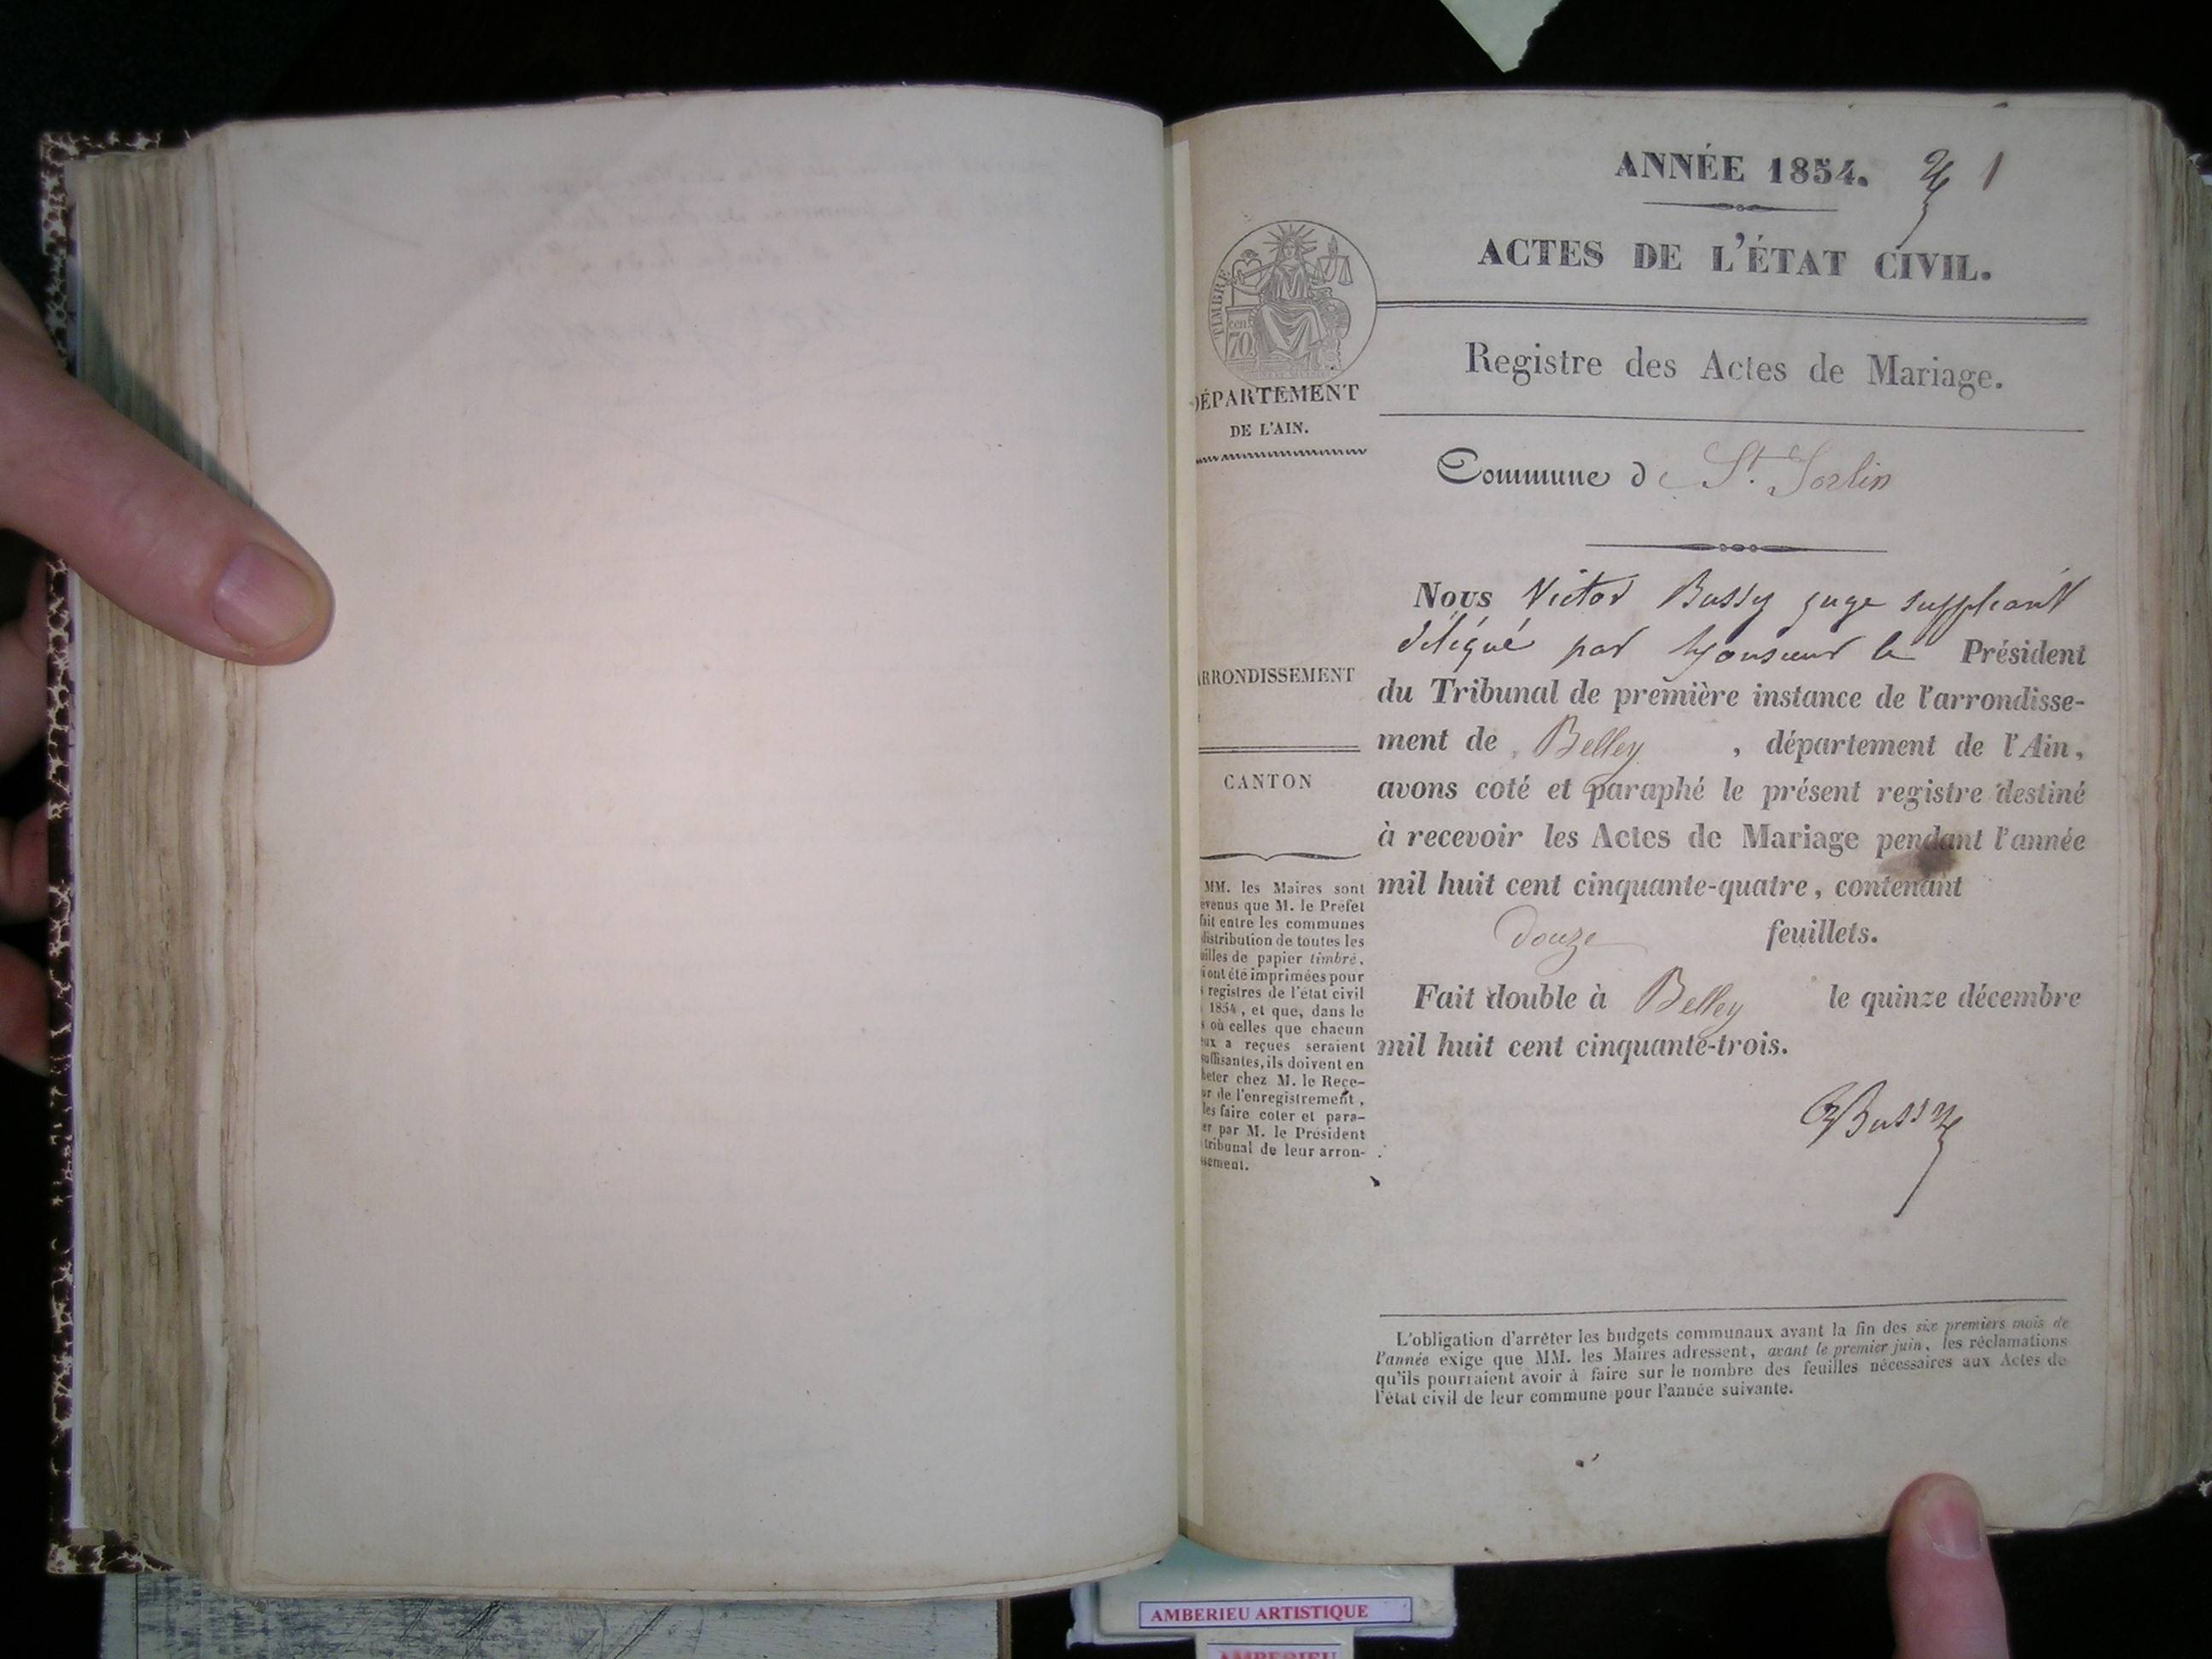 ANNÉE 1854. 1
ACTES DE L'ÉTAT CIVIL.
TIMBRE
cent
70
DÉPARTEMENT
DE L'AIN.
Registre des Actes de Mariage.
Commune de St. Sorlin
Nous Victor Bussy juge suppléant
délégué par Monsieur le Président
du Tribunal de première instance de l'arrondisse-
ment de Belley, département de l'Ain,
avons coté et paraphé le présent registre destiné
à recevoir les Actes de Mariage pendant l'année
mil huit cent cinquante-quatre, contenant
douze feuillets.
Fait double à Belley le quinze décembre
mil huit cent cinquante-trois.
Bussy
ARRONDISSEMENT
CANTON
MM. les Maires sont
evenus que M. le Préfet
fait entre les communes
distribution de toutes les
uilles de papier timbré,
i ont été imprimées pour
s registres de l'état civil
1854, et que, dans le
s où celles que chacun
eux a reçues seraient
suffisantes, ils doivent en
heter chez M. le Rece-
ur de l'enregistrement,
les faire coter et para-
er par M. le Président
tribunal de leur arron-
ssement.
L'obligation d'arrêter les budgets communaux avant la fin des six premiers mois de
l'année exige que MM. les Maires adressent, avant le premier juin, les réclamations
qu'ils pourraient avoir à faire sur le nombre des feuilles nécessaires aux Actes de
l'état civil de leur commune pour l'année suivante.
AMBERIEU ARTISTIQUE
AMBERIEU